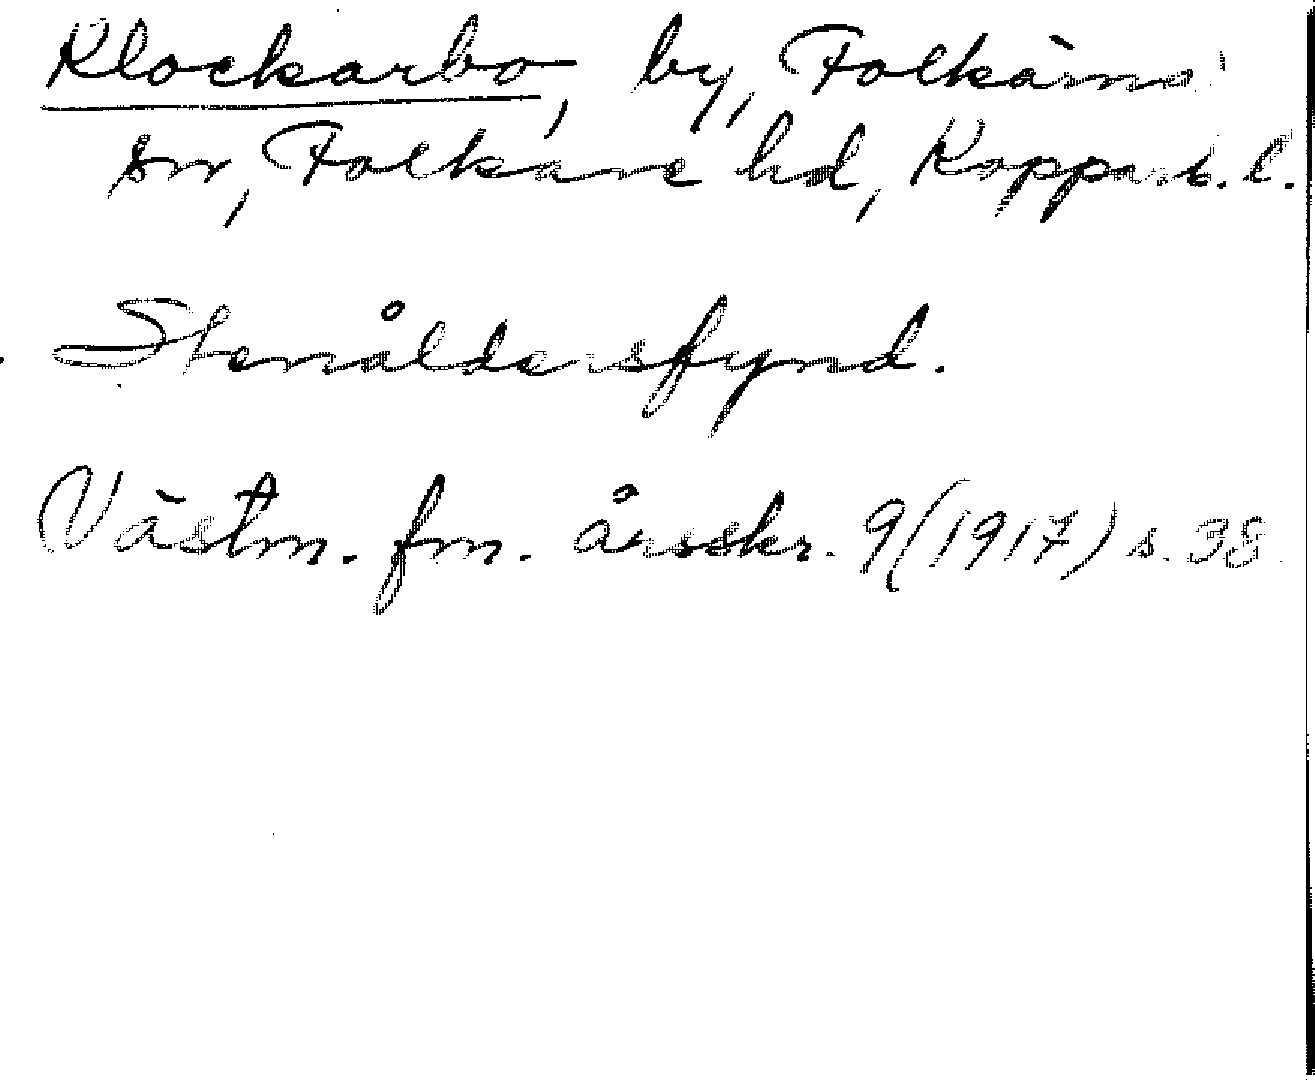 Klockarbo, by, Folkärna
sn, Folkare hd, Kopparb. l.
Stenåldersfynd.
Västm. fm. årsskr. 9 (1917) s. 38.